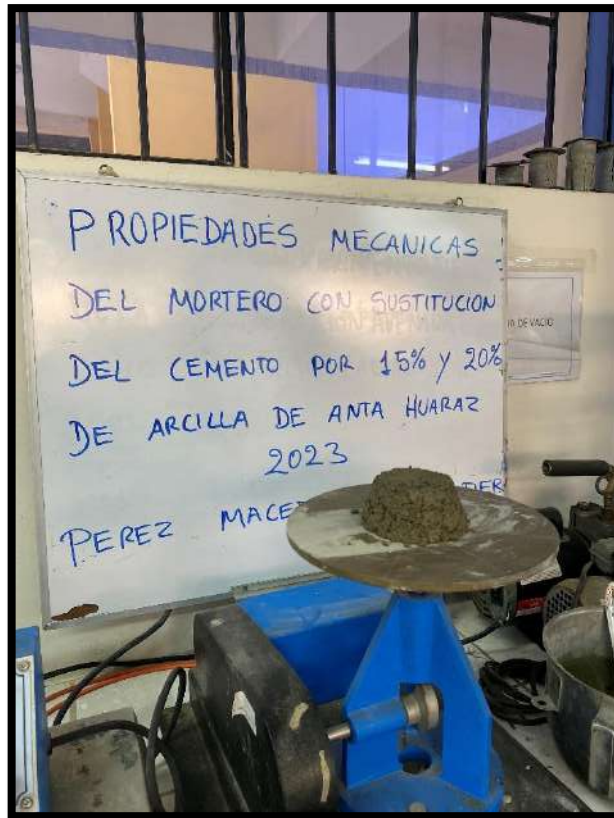 PROPIEDADES MECANICAS
DEL MORTERO CON SUSTITUCION
DEL CEMENTO POR 15% Y 20%
DE ARCILLA DE ANTA HUARAZ
2023
PEREZ
DE VACIO